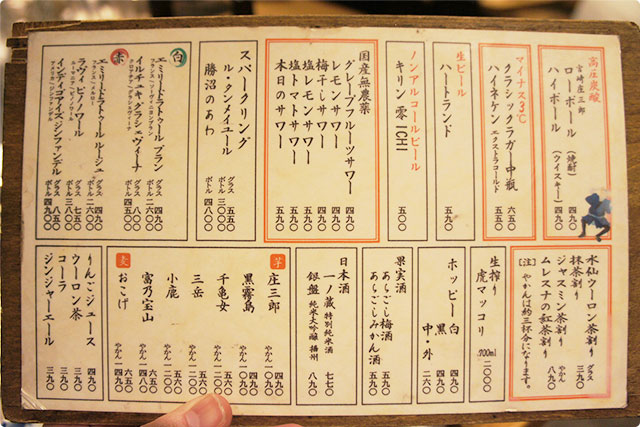 高圧炭酸
宮崎庄三郎
ローボール（焼酎） 四九〇
ハイボール（ウイスキー） 四九〇
マイナス3℃
クラシックラガー中瓶 六五〇
ハイネケン エクストラコールド 五五〇
生ビール
ハートランド 五〇〇
ノンアルコールビール
キリン 零ICHI 五〇〇
国産無農薬
グレープフルーツサワー 四九〇
レモンサワー 四九〇
梅干しサワー 四九〇
塩レモンサワー
塩トマトサワー
本日のサワー
スパークリング
ル・タンメイユール グラス 五五〇
ボトル 三〇〇〇
勝沼のあわ ボトル 四八〇〇
白
エミリードラトゥール ブラン グラス 四九〇
ボトル 二六〇〇
イルチェルグラシェヴィーナ
ボトル 四五〇〇
赤
エミリードラトゥール ルージュ グラス 四九〇
ボトル 二六〇〇
ラヴィ ピノノワール グラス 七五〇
ボトル 三八〇〇
インディゴアイズ ジンファンデル
ボトル 四九〇〇
水仙ウーロン茶割り
抹茶割り グラス 三九〇
ジャスミン茶割り
ムレスナの紅茶割り やかん 八九〇
［注］やかんは約三杯分になります。
生搾り
虎マッコリ 700ml 二〇〇〇
ホッピー 白 黒 四九〇
中・外 二六〇
果実酒
あらごし梅酒 五九〇
あらごしみかん酒 五九〇
日本酒
一ノ蔵 特別純米酒 七七〇
銀盤 純米大吟醸 播州 八九〇
芋
庄三郎 四九〇
黒霧島 四九〇
千亀女
三岳
小鹿
麦
富乃宝山
おこげ
りんごジュース 四九〇
ウーロン茶 三九〇
コーラ 三九〇
ジンジャーエール 三九〇